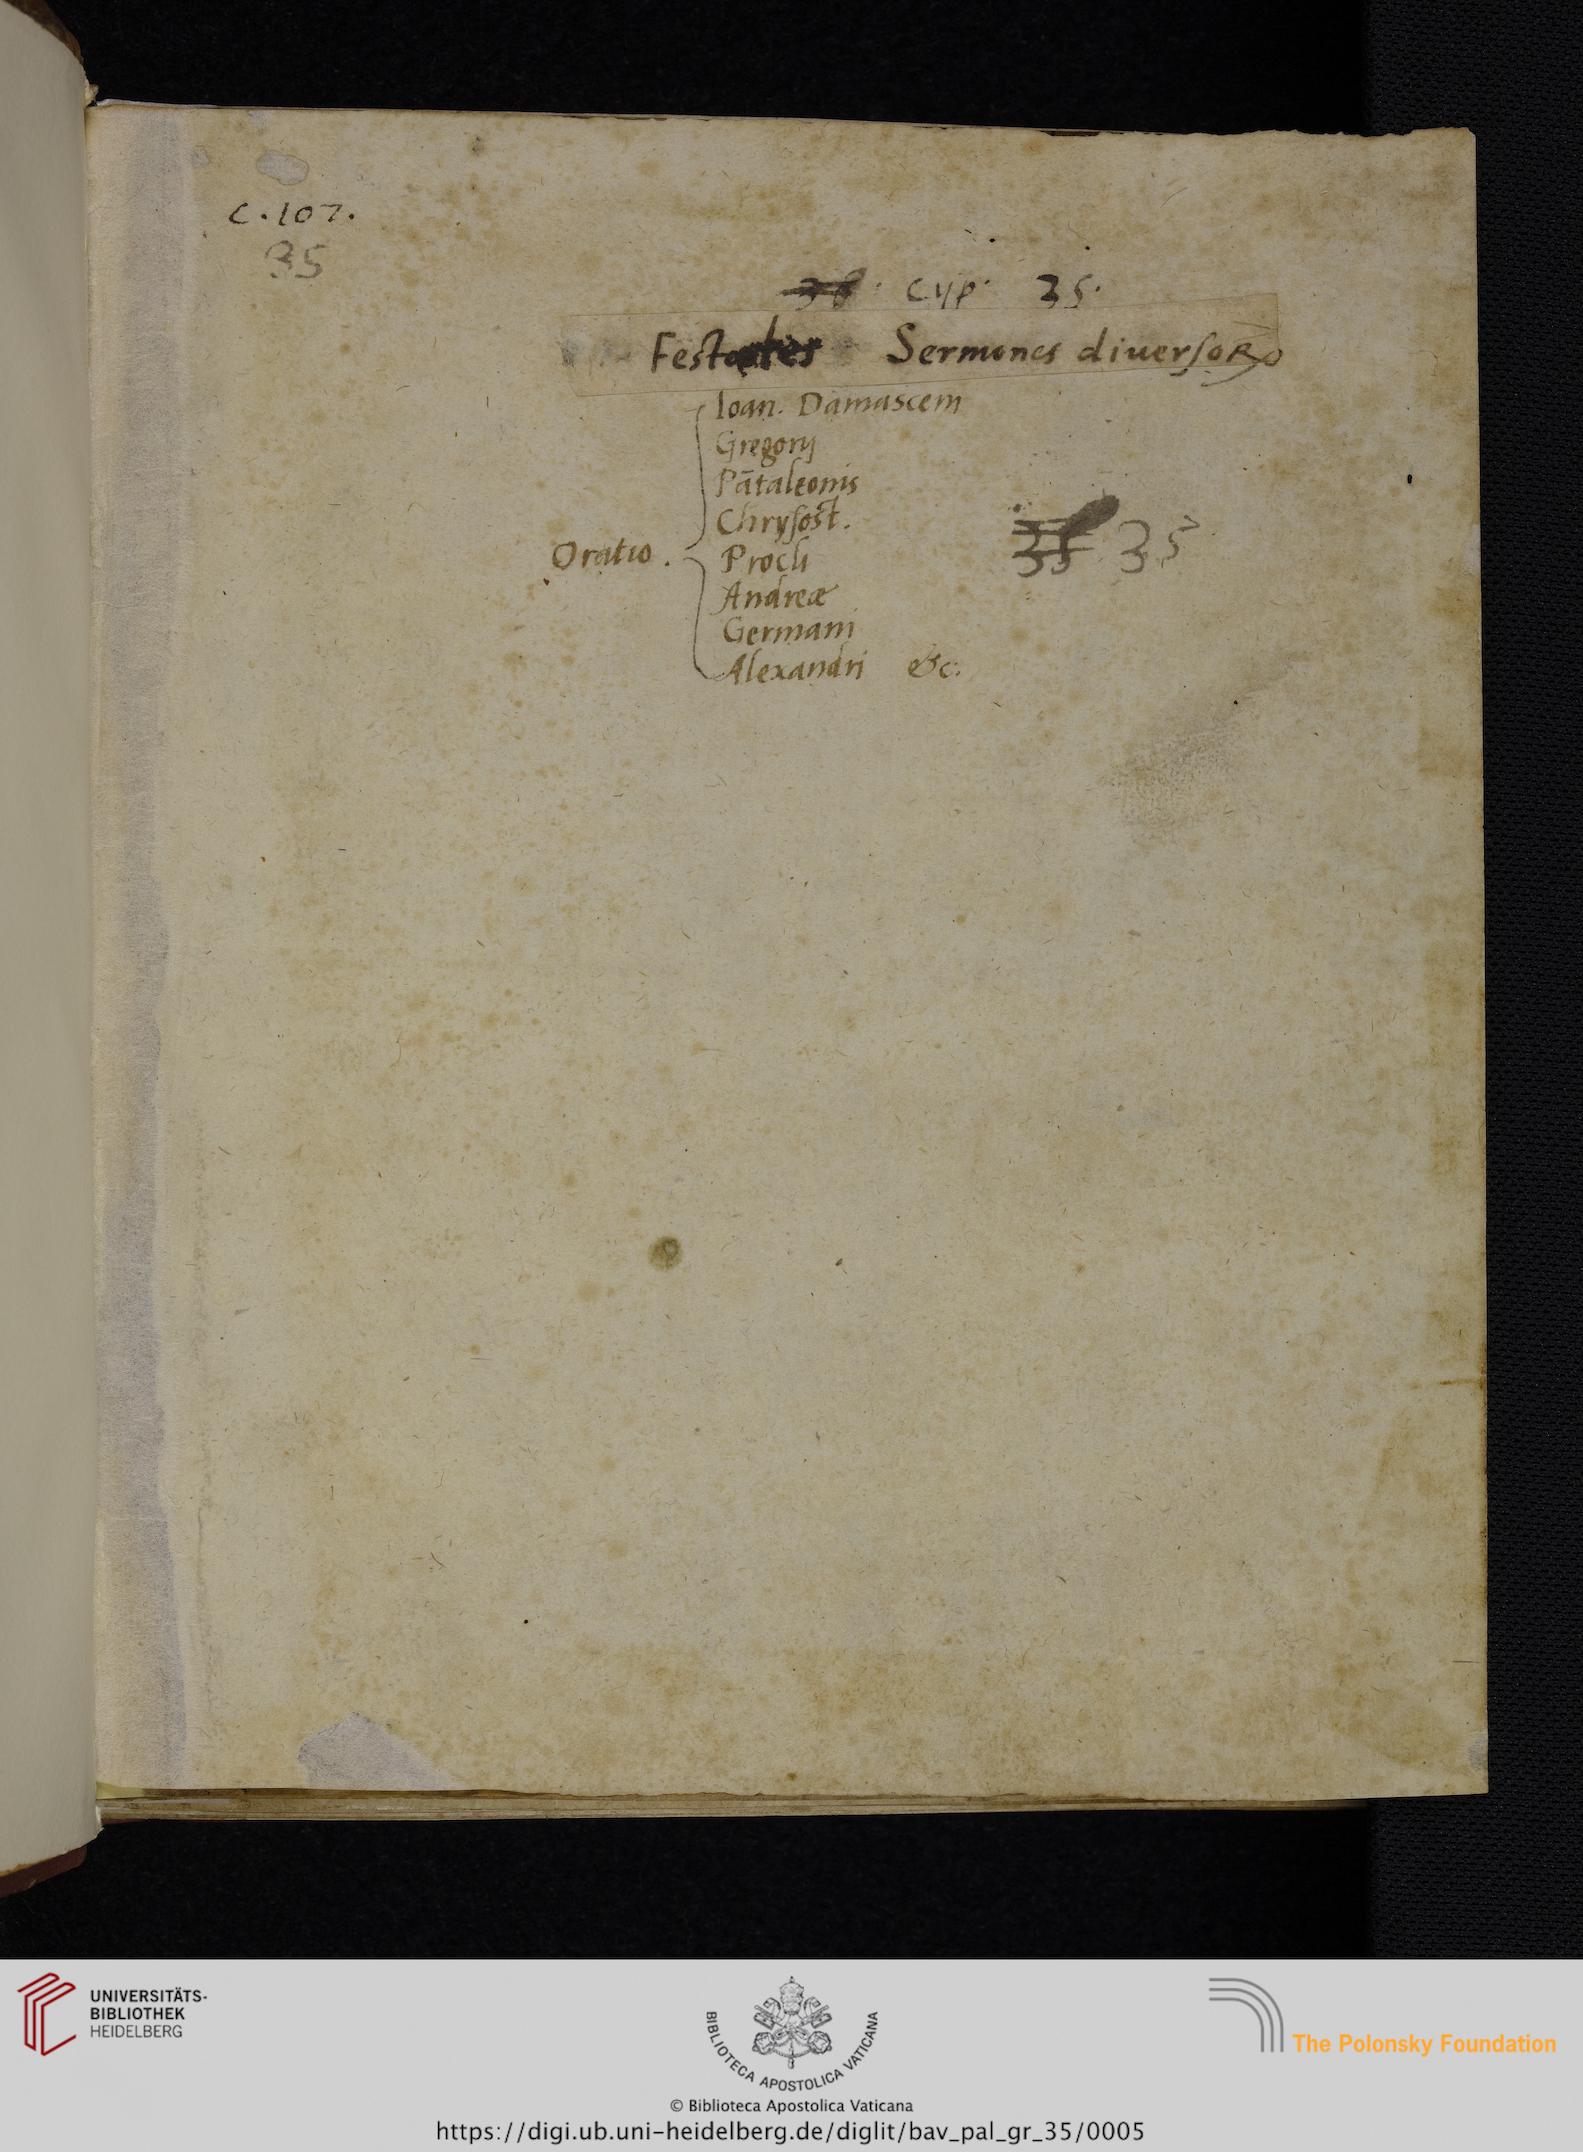 C. 107.
35
38. Cyp. 35.
Sermones diuersoꝝ
Ioan. Damasceni
Gregorij
Pātaleonis
Chrysost.
Oratio. Procli
35 35
Andreæ
Germani
Alexandri &c.
UNIVERSITÄTS-
BIBLIOTHEK
HEIDELBERG
BIBLIOTECA APOSTOLICA VATICANA
The Polonsky Foundation
© Biblioteca Apostolica Vaticana
https://digi.ub.uni-heidelberg.de/diglit/bav_pal_gr_35/0005